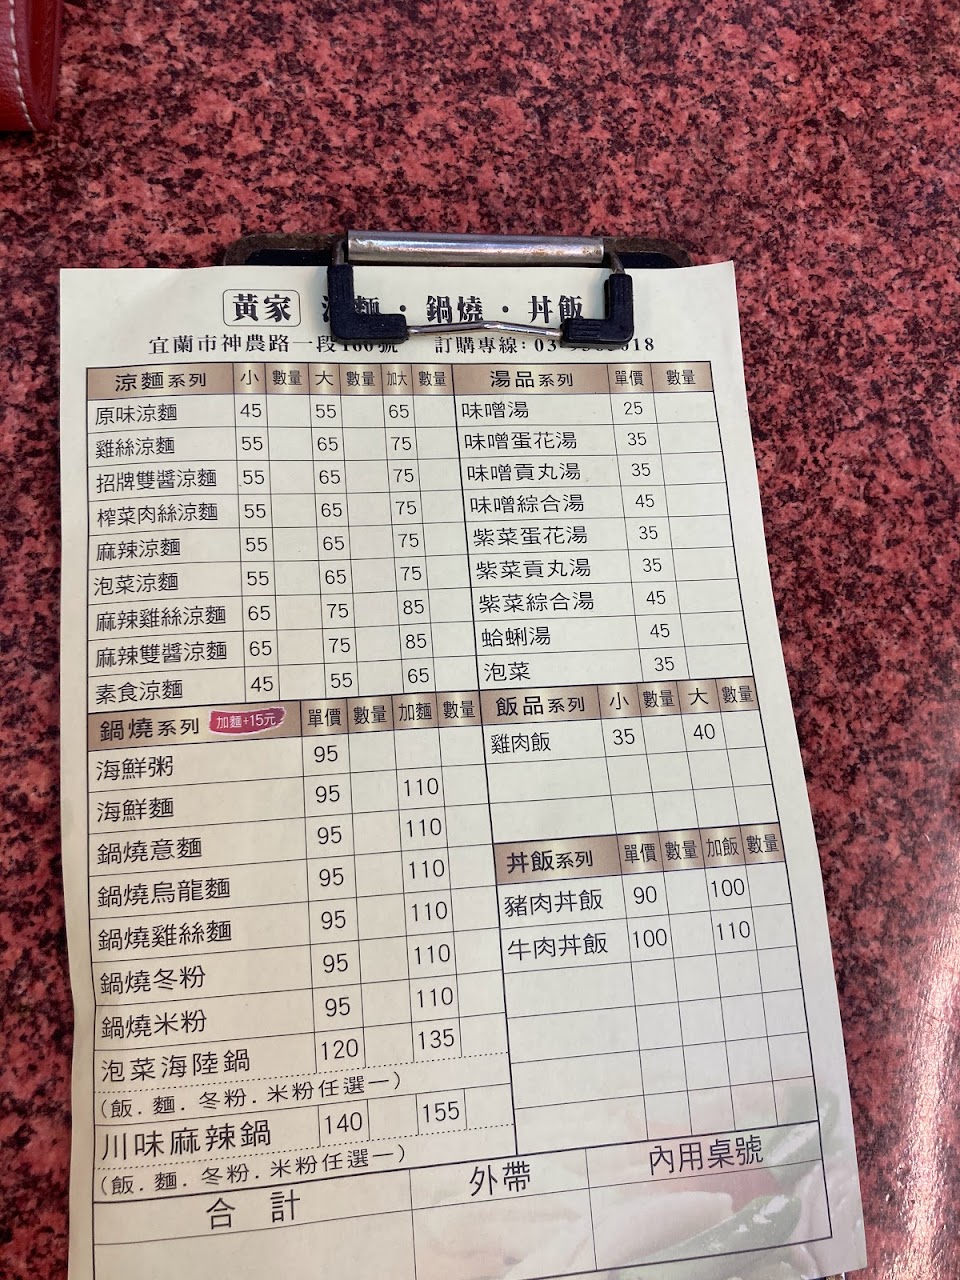 黃家 麵·鍋燒·丼飯
宜蘭市神農路一段 訂購專線:03
涼麵系列 小 數量 大 數量 加大 數量
原味涼麵 45 55 65
雞絲涼麵 55 65 75
招牌雙醬涼麵 55 65 75
榨菜肉絲涼麵 55 65 75
麻辣涼麵 55 65 75
泡菜涼麵 55 65 75
麻辣雞絲涼麵 65 75 85
麻辣雙醬涼麵 65 75 85
素食涼麵 45 55 65
鍋燒系列 加麵+15元 單價 數量 加麵 數量
海鮮粥 95
海鮮麵 95 110
鍋燒意麵 95 110
鍋燒烏龍麵 95 110
鍋燒雞絲麵 95 110
鍋燒冬粉 95 110
鍋燒米粉 95 110
泡菜海陸鍋 120 135
(飯.麵.冬粉.米粉任選一)
川味麻辣鍋 140 155
(飯.麵.冬粉.米粉任選一)
湯品系列 單價 數量
味噌湯 25
味噌蛋花湯 35
味噌貢丸湯 35
味噌綜合湯 45
紫菜蛋花湯 35
紫菜貢丸湯 35
紫菜綜合湯 45
蛤蜊湯 45
泡菜 35
飯品系列 小 數量 大 數量
雞肉飯 35 40
丼飯系列 單價 數量 加飯 數量
豬肉丼飯 90 100
牛肉丼飯 100 110
合計 外帶 內用桌號